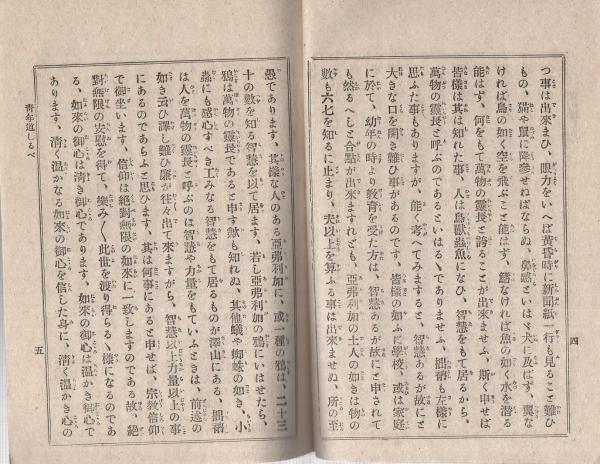 四
つ事は出來まひ、眼力をいへば黄昏時に新聞紙一行も見ること難ひ
もの、猫や鼠に降參せねばならぬ、鼻感といはゞ犬に及ばず、喪な
ければ鳥の如く空を飛ぶこと能はず、鰭なければ魚の如く水を潜る
能はず、何をもて萬物の靈長と誇ることが出來ませふ、斯く申せば
皆樣は其は知れた事、人は鳥獸蟲魚になひ、智慧をもて居るから、
萬物の靈長と呼ぶのであるといはるゝでありませふ、拙禱も左樣に
思ふた事もありますが、能く考へてみますると、智慧あるが故にと
大きな口を開き難ひ事があるのです、皆樣の如ふに學校、或は家庭
に於て、幼年の時より敎育を受た方は、智慧あるが故にと申されて
も然るべしと合點が出來ますれども、亞弗利加の土人の如きは物の
數も六七を知るに止まり、夫以上を算ふる事は出來ませぬ、所の至
愚であります、其樣な人のある亞弗利加に、或一種の鴉は、二十三
十の數を知る智慧を以て居ます、若し亞弗利加の鴉にいはせたら、
鴉は萬物の靈長であると申す歟も知れぬ、其他蟻や蜘蛛の如き、小
蟲にも感心すべき工みなる智慧をもて居るものが澤山にある、拙禱
は人を萬物の靈長と呼ぶのは智慧や力量をもていふときは、前述の
如き云ひ譯し難ひ廉が往々出て來ますから、智慧以上力量以上の事
にあるのであらふと思ひます、其は何事にあると申せば、宗敎信仰
で御坐います、信仰は絕對無限の如來に一致しますのである故、絕
對無限の安慰を得て、樂み〱此世を渡り得らるゝ樣になるのであ
る、如來の御心は淸き御心であります、如來の御心は溫かき御心で
あります、淸く溫かなる如來の御心を信した身に、淸く溫かき心の
靑年道しるべ
五